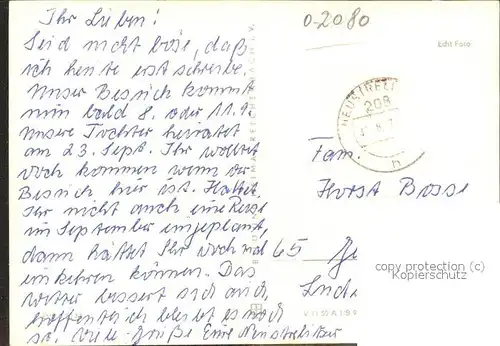 Ihr Lieben!
Seid nicht böse, daß
ich heute erst schreibe.
Unser Besuch kommt
nun bald 8. oder 11.9.
Unsere Tochter heiratet
am 23. Sept. Ihr wolltet
doch kommen wenn der
Besuch hier ist. Hattet
Ihr nicht auch eine Reise
im September eingeplant,
dann hättet Ihr doch mal
einkehren können. Das
Wetter bessert sich auch,
hoffentlich bleibt es noch
so. Viele Grüße Eure Neustrelitzer
0-2080
Echt Foto
NEUSTRELI
208
Fam.
Horst Bosse
65
copyright (c)
Kopierschutz